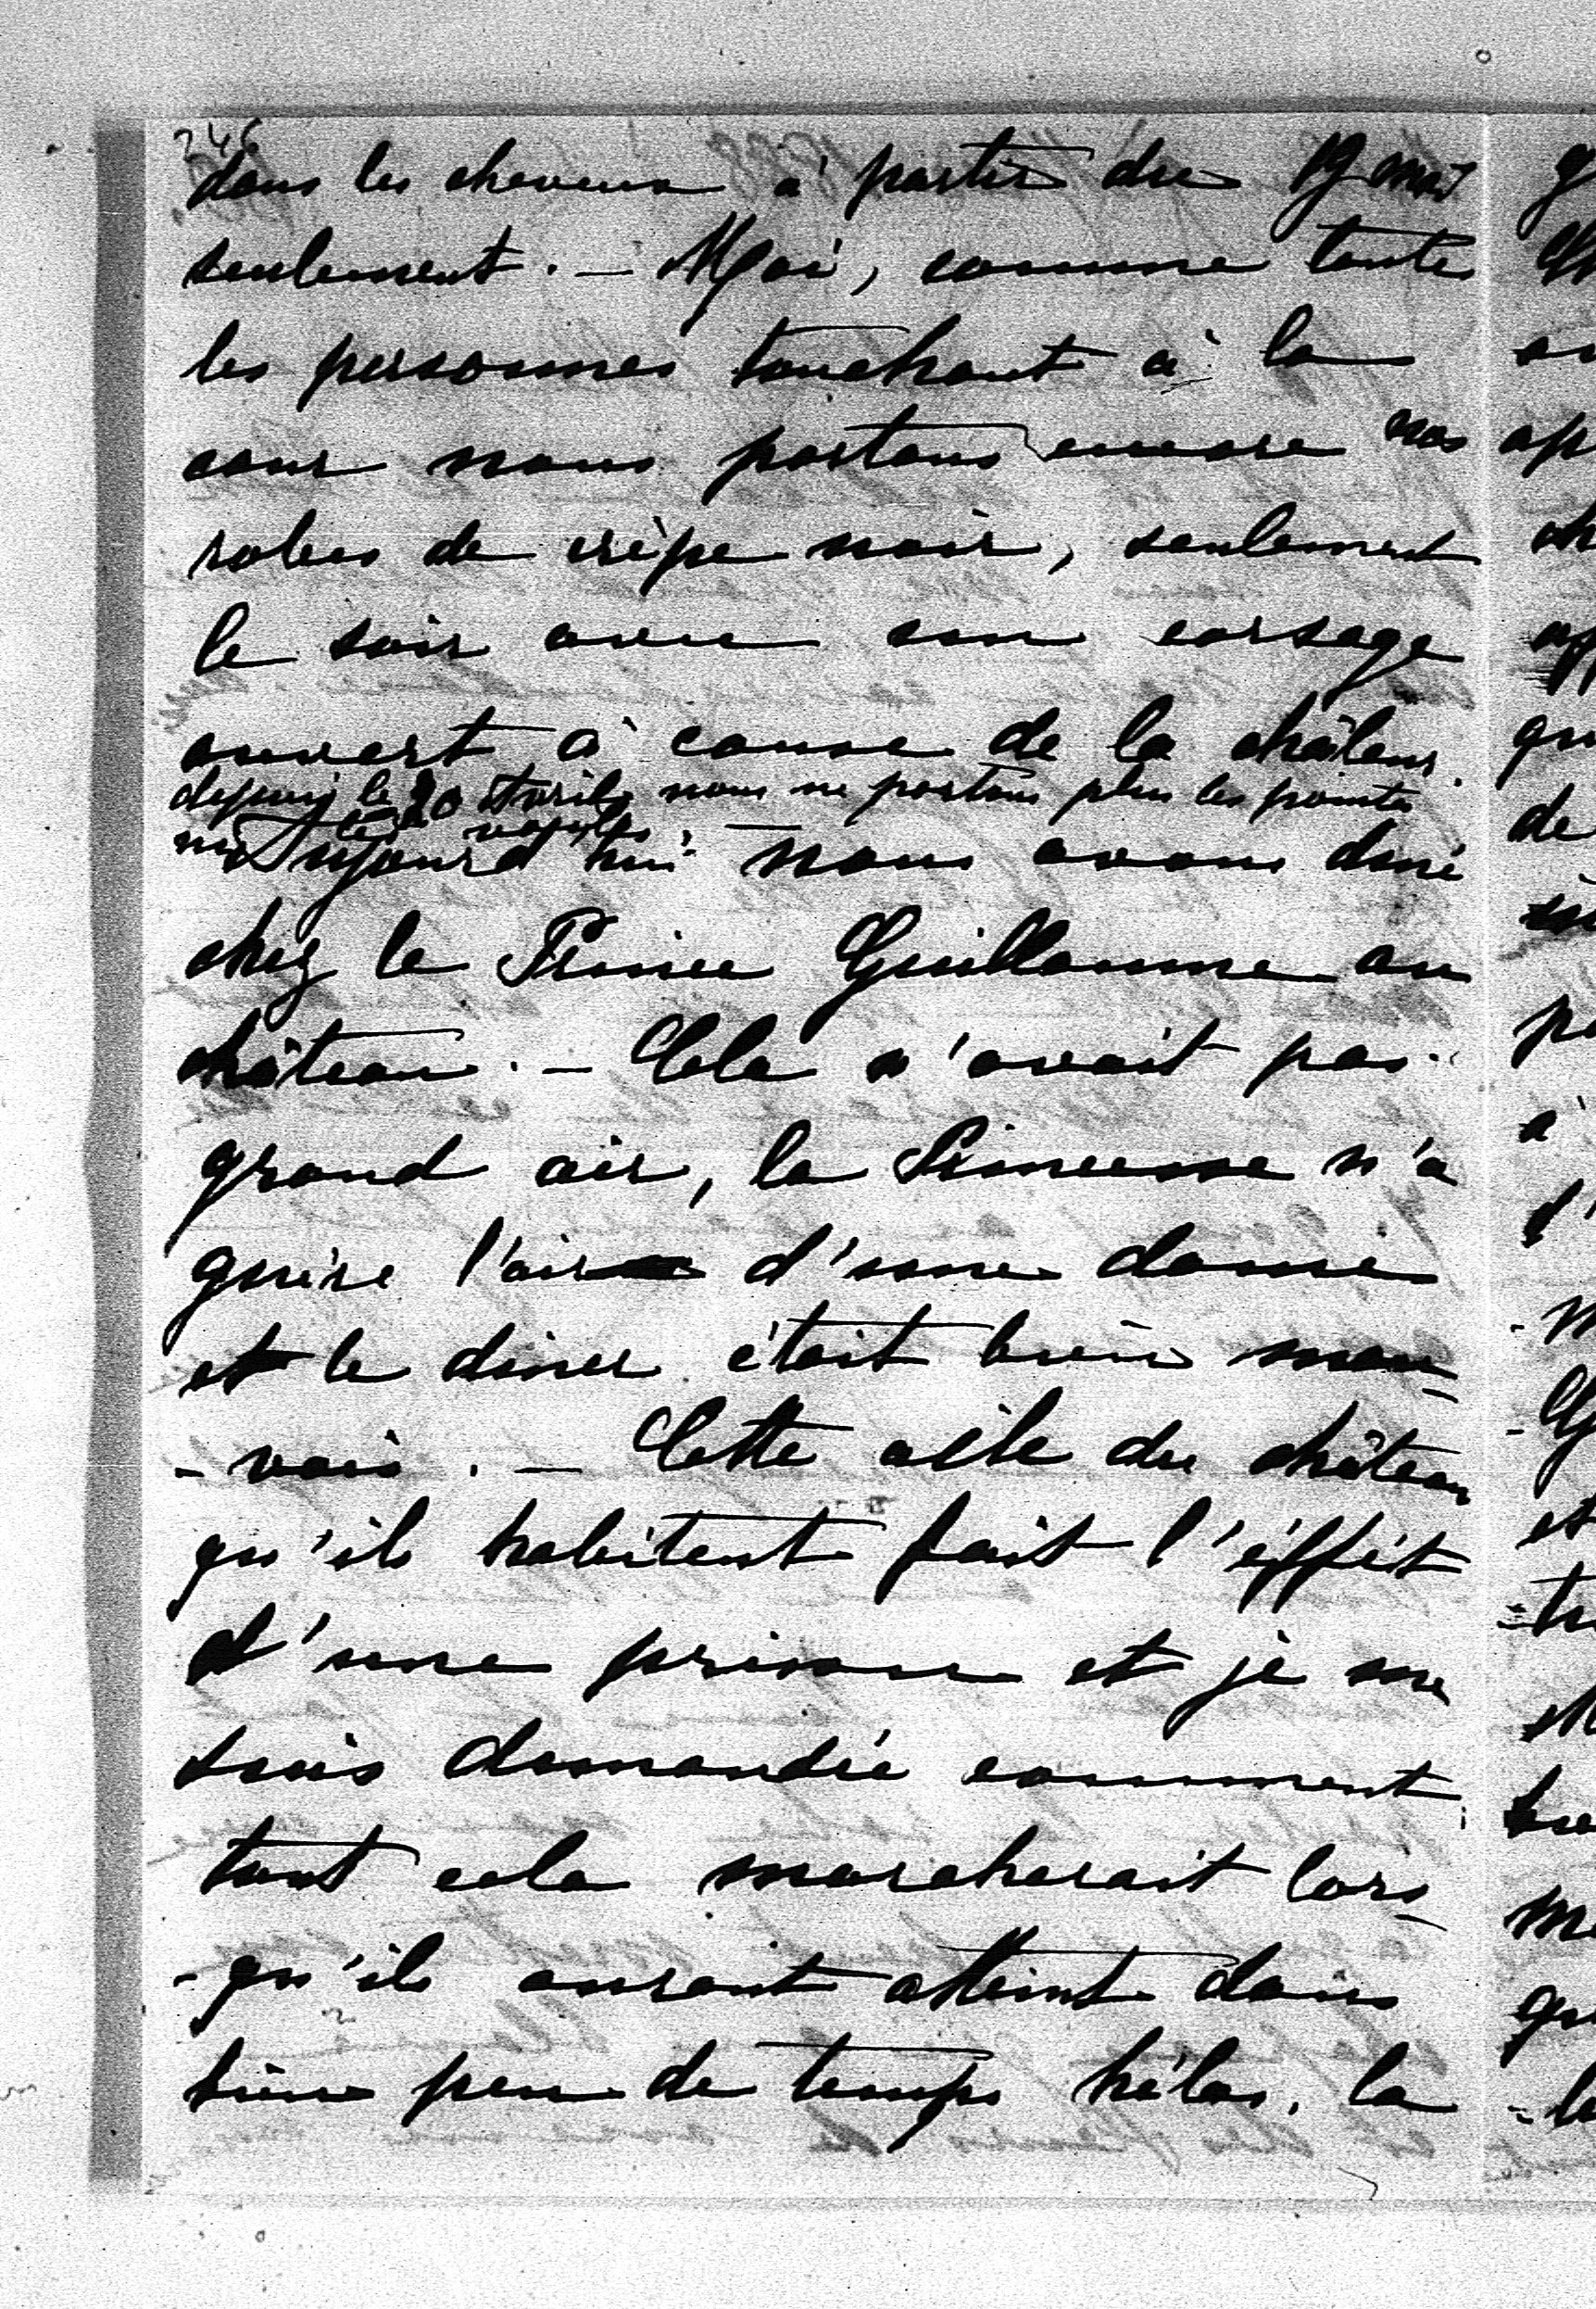 246
dans les cheveux à partir du 19 mai
seulement. — Moi, comme toute
les personnes touchant à la
cour nous portons encore nos
robes de crêpe noir, seulement
le soir avec un corsage
ouvert à cause de la châleur.
depuis le 20 Avril nous ne portons plus les pointes
ni les voiles.
Aujourd'hui nous avons diné
chez le Prince Guillaume au
château. — Cela n'avait pas
grand air, la Princesse n'a
guère l'air d'une dame
et le diner était bien mau-
-vais. — Cette aile du château
qu'ils habitent fait l'éffêt
d'une prison et je me
suis demandée comment
tout cela marcherait lors-
-qu'ils auront atteint dans
bien peu de temps hélas, la